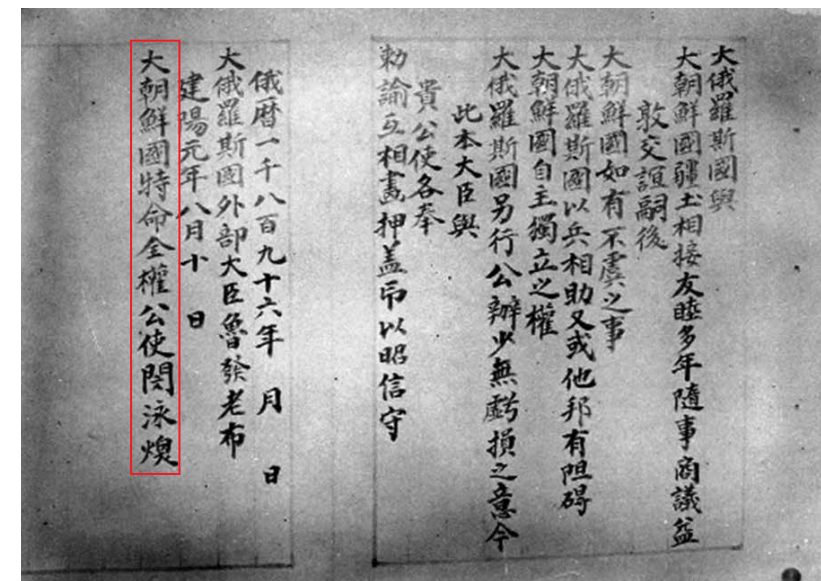 大俄羅斯國與
大朝鮮國疆土相接友睦多年隨事商議益
敦交誼嗣後
大朝鮮國如有不虞之事
大俄羅斯國以兵相助又或他邦有阻碍
大朝鮮國自主獨立之權
大俄羅斯國另行公辦少無虧損之意今
此本大臣與
貴公使各奉
勅諭互相畫押盖印以昭信守
俄曆一千八百九十六年 月 日
大俄羅斯國外部大臣魯發老布
建陽元年八月十 日
大朝鮮國特命全權公使閔泳煥